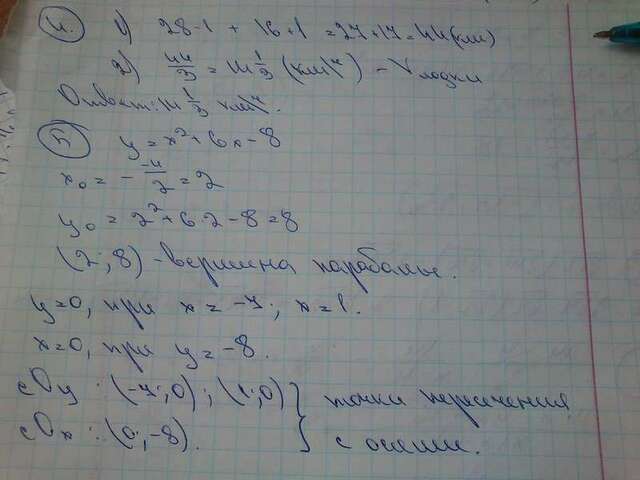 4. 1) 28-1 + 16+1 = 27+17 = 44 (км)
2) 44/3 = 14 1/3 (км/ч) - V лодки
Ответ: 14 1/3 км/ч.
5. y = x² + 6x - 8
x₀ = - -4/2 = 2
y₀ = 2² + 6·2 - 8 = 8
(2; 8) - вершина параболы.
y=0, при x = -7; x = 1.
x=0, при y = -8.
с Oy : (-7; 0) ; (1; 0) } точки пересечения
с Ox : (0; -8). с осями.